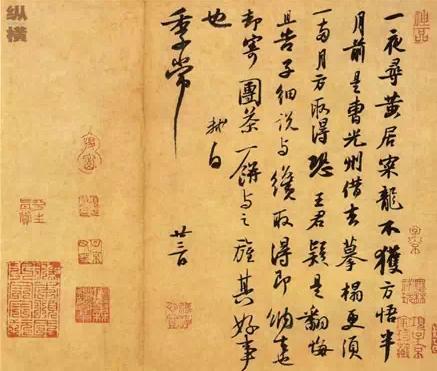 一夜尋黃居寀龍不獲方悟半
月前是曹光州借去摹搨更須
一兩月方取得恐王君疑是翻悔
且告子細說与纔取得即納去也
却寄團茶一餅与之旌其好事
也
軾白
季常
廿三日
纵横